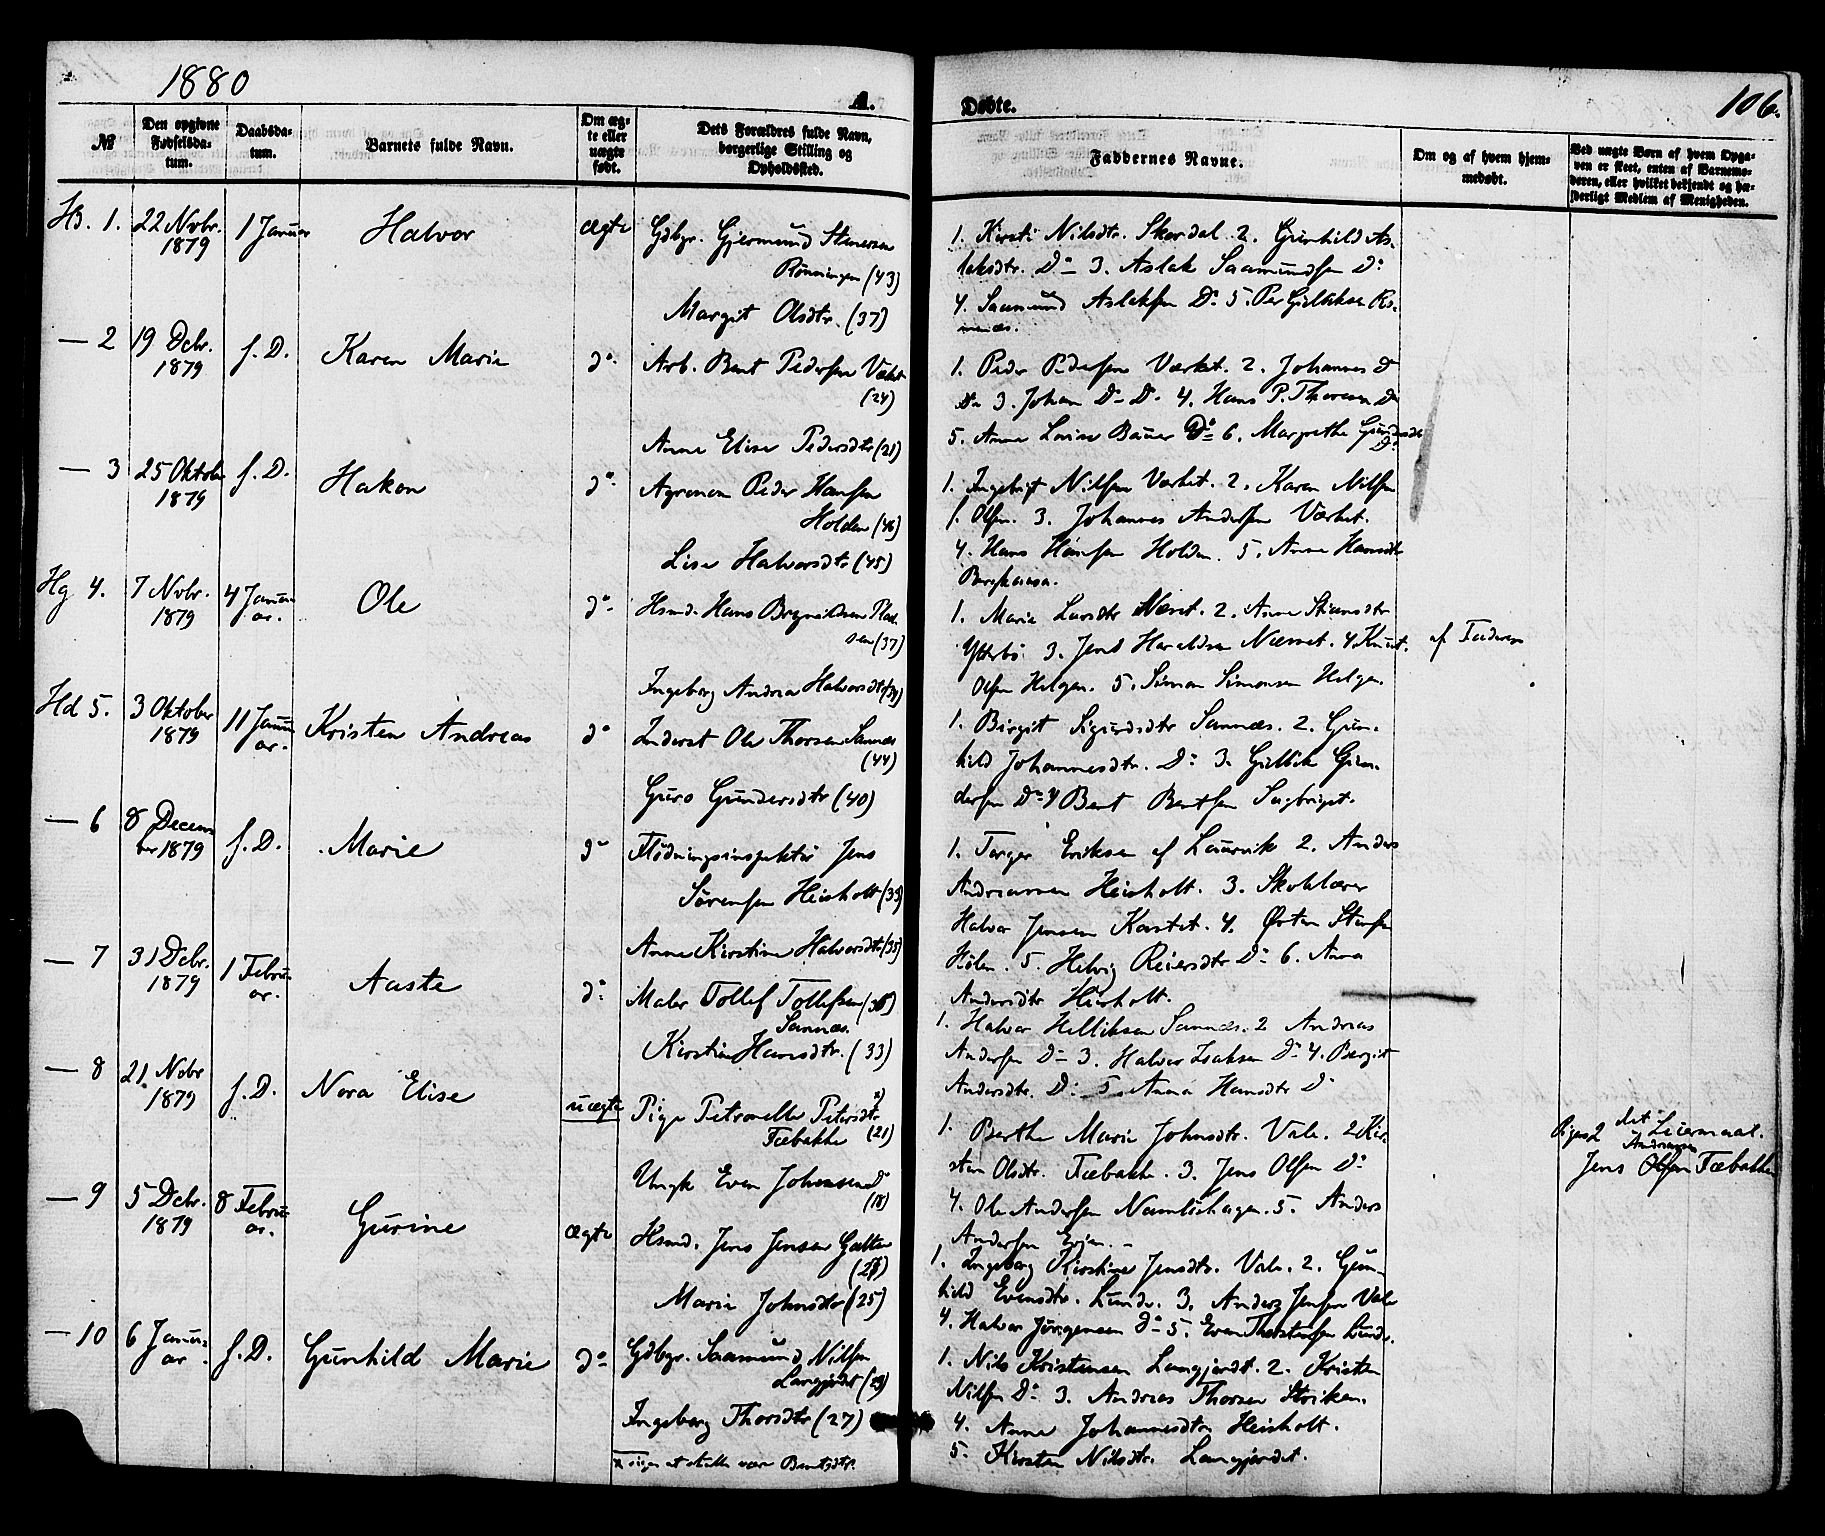 1880
A.
Døbte.
106.
№
Den opgivne Fødselsdatum.
Daabsdatum.
Barnets fulde Navn.
Om ægte eller uægte født.
Dets Forældres fulde Navn, borgerlige Stilling og Opholdssted.
Faddernes Navne.
Om og af hvem hjemmedøbt.
Ved uægte Børn af hvem Opgaven er skeet, enten af Barnemoderen, eller hvilket bekjendt og hæderligt Medlem af Menigheden.
1. 22 Novbr. 1879
1 Januar
Halvor
ægte
Gdbgr. Gjermund Stenersen
Rønningen (43)
Margit Olsdtr. (37)
1. Kirsti Nilsdtr. Skordal 2. Gunhild As-
laksdtr. Do 3. Aslak Saamundsen Do
4. Saamund Aslaksen Do 5. Per
— 2 19 Debr. 1879
f. D.
Karen Marie
do
Arb. Bent Pedersen
(24)
Anne Elise Pedersdtr (21)
1. Peder Pedersen Værket. 2. Johannes Do
Do 3. Johan Do Do 4. Hans P. Thoresen Do
5. Anne Lovise Bauer Do 6. Margrethe
— 3 25 Oktober 1879
f. D.
Hakon
do
Agronom Peder Hansen
Holden (46)
Lise Halvorsdtr (45)
1. Ingebrigt Nilsen Værket. 2. Karen Nilsen
f. Olsen. 3. Johannes Andersen Værket.
4. Hans Hansen Holden. 5. Anne Hansdtr
Hg 4. 7 Novbr. 1879
4 Januar.
Ole
do
Hsmd. Hans Brynildsen Plad-
sen (37)
Ingeborg Andrea Halvorsdtr
1. Marie Larsdtr Næset. 2. Anne
Ytterbø 3. Jens Haraldsen Næsset. 4. Knut
Olsen Helgen. 5. Simon Simonsen Helgen.
af Faderen
Hd 5. 3 Oktober 1879
11 Januar.
Kristen Andreas
do
Inderst Ole Thorsen Sannes
(44)
Guro Gundersdtr (40)
1. Birgit Sigurdsdtr Sannes. 2. Gun-
hild Johannesdtr. Do 3. Gullik Gun-
dersen Do 4 Bent Bentsen
— 6 8 December 1879
f. D.
Marie
do
Flødningsinspektør Jens
Sørensen Heisholt (33)
Anne Kirstine Halvorsdtr (35)
1. Torger Eriksen af Laurvik 2. Anders
Andreassen Heisholt. 3. Skolelærer
Halvor Jensen Kastet. 4. Østen
Holen. 5. Helvig Reiersdtr Do 6. Anna
Andersdtr Heisholt.
— 7 31 Debr. 1879
1 Februar.
Aaste
do
Maler Tollef Tollefsen
Sannes.
Kirstine Hansdtr. (33)
1. Halvor Helliksen Sannes. 2 Andreas
Andersen Do 3. Halvor Isaksen Do 4. Bergit
Andersdtr. Do 5. Anna Hansdtr Do
— 8 21. Novbr 1879
f. D.
Nora Elise
uægte
Pige Petronelle Petersdtr x)
Fæbakke (21)
Ungk Even Johnsen Do
(18)
1. Berthe Marie Johnsdtr. Vale. 2 Kir-
sten Olsdtr. Fæbakke. 3. Jens Olsen Do
4. Ole Andersen Namløshagen. 5. Anders
Andersen
Pigens 2 det Leiermaal.
Andreasen
Jens Olsen Fæbakke
— 9 5 Debr. 1879
8 Februar.
Gurine
ægte
Hsmd. Jens Jensen
Marie Johnsdtr (25)
1. Ingeborg Kirstine Jensdtr. Vale. 2. Gun-
hild Evensdtr. Lunde. 3. Anders Jensen Vale
4. Halvor Jørgensen Do 5. Even Thorstensen Lunde.
— 10 6 Januar.
f. D.
Gunhild Marie
do
Gdbgr. Saamund Nilsen
Langjordet
Ingeborg Thorsdtr (27)
1. Nils Kristensen Langjordet. 2. Kristen
Nilsen Do 3. Andreas Thorsen Striken.
4. Anne Johannesdtr Heisholt.
5. Kirsten Nilsdtr. Langjordet.
x siges at skulle være Bentsdtr.